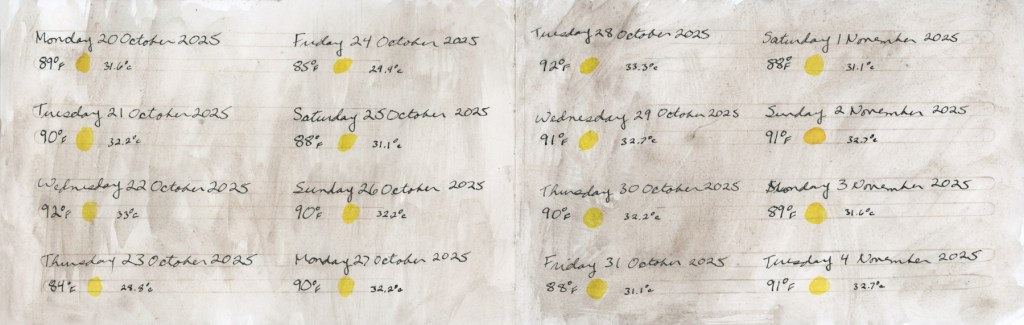 Monday 20 October 2025
89°F 31.6°c
Tuesday 21 October 2025
90°F 32.2°c
Wednesday 22 October 2025
92°F 33°c
Thursday 23 October 2025
84°F 28.8°c
Friday 24 October 2025
85°F 29.4°c
Saturday 25 October 2025
88°F 31.1°c
Sunday 26 October 2025
90°F 32.2°c
Monday 27 October 2025
90°F 32.2°c
Tuesday 28 October 2025
92°F 33.3°c
Wednesday 29 October 2025
91°F 32.7°c
Thursday 30 October 2025
90°F 32.2°c
Friday 31 October 2025
88°F 31.1°c
Saturday 1 November 2025
88°F 31.1°c
Sunday 2 November 2025
91°F 32.7°c
Monday 3 November 2025
89°F 31.6°c
Tuesday 4 November 2025
91°F 32.7°c